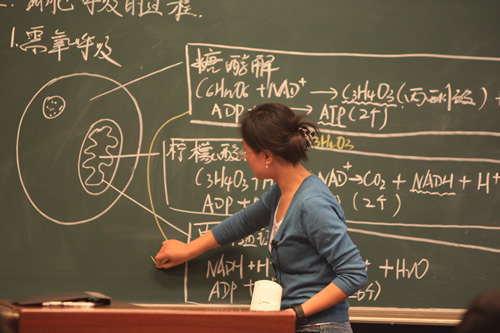 呼吸的过程.
1.需氧呼吸
糖酵解
C6H12O6 + NAD+ → C3H4O3 (丙酮酸) +
ADP → ATP (2个)
柠檬酸 C3H4O3
C3H4O3 + NAD+ → CO2 + NADH + H+
ADP + (2个)
NADH + H+ → + H2O
ADP + 个)